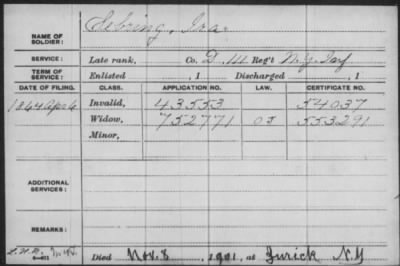 NAME OF SOLDIER: Sebring, Ira
SERVICE: Late rank, Co. D. 111 Reg't N.Y. Inf
TERM OF SERVICE: Enlisted , 1 Discharged , 1
DATE OF FILING. CLASS. APPLICATION NO. LAW. CERTIFICATE NO.
1864 Apr 6 Invalid, 43553 54037
Widow, 752771 OJ 553291
Minor,
ADDITIONAL SERVICES:
REMARKS:
Died Nov. 8 1901, at Zurick N.Y